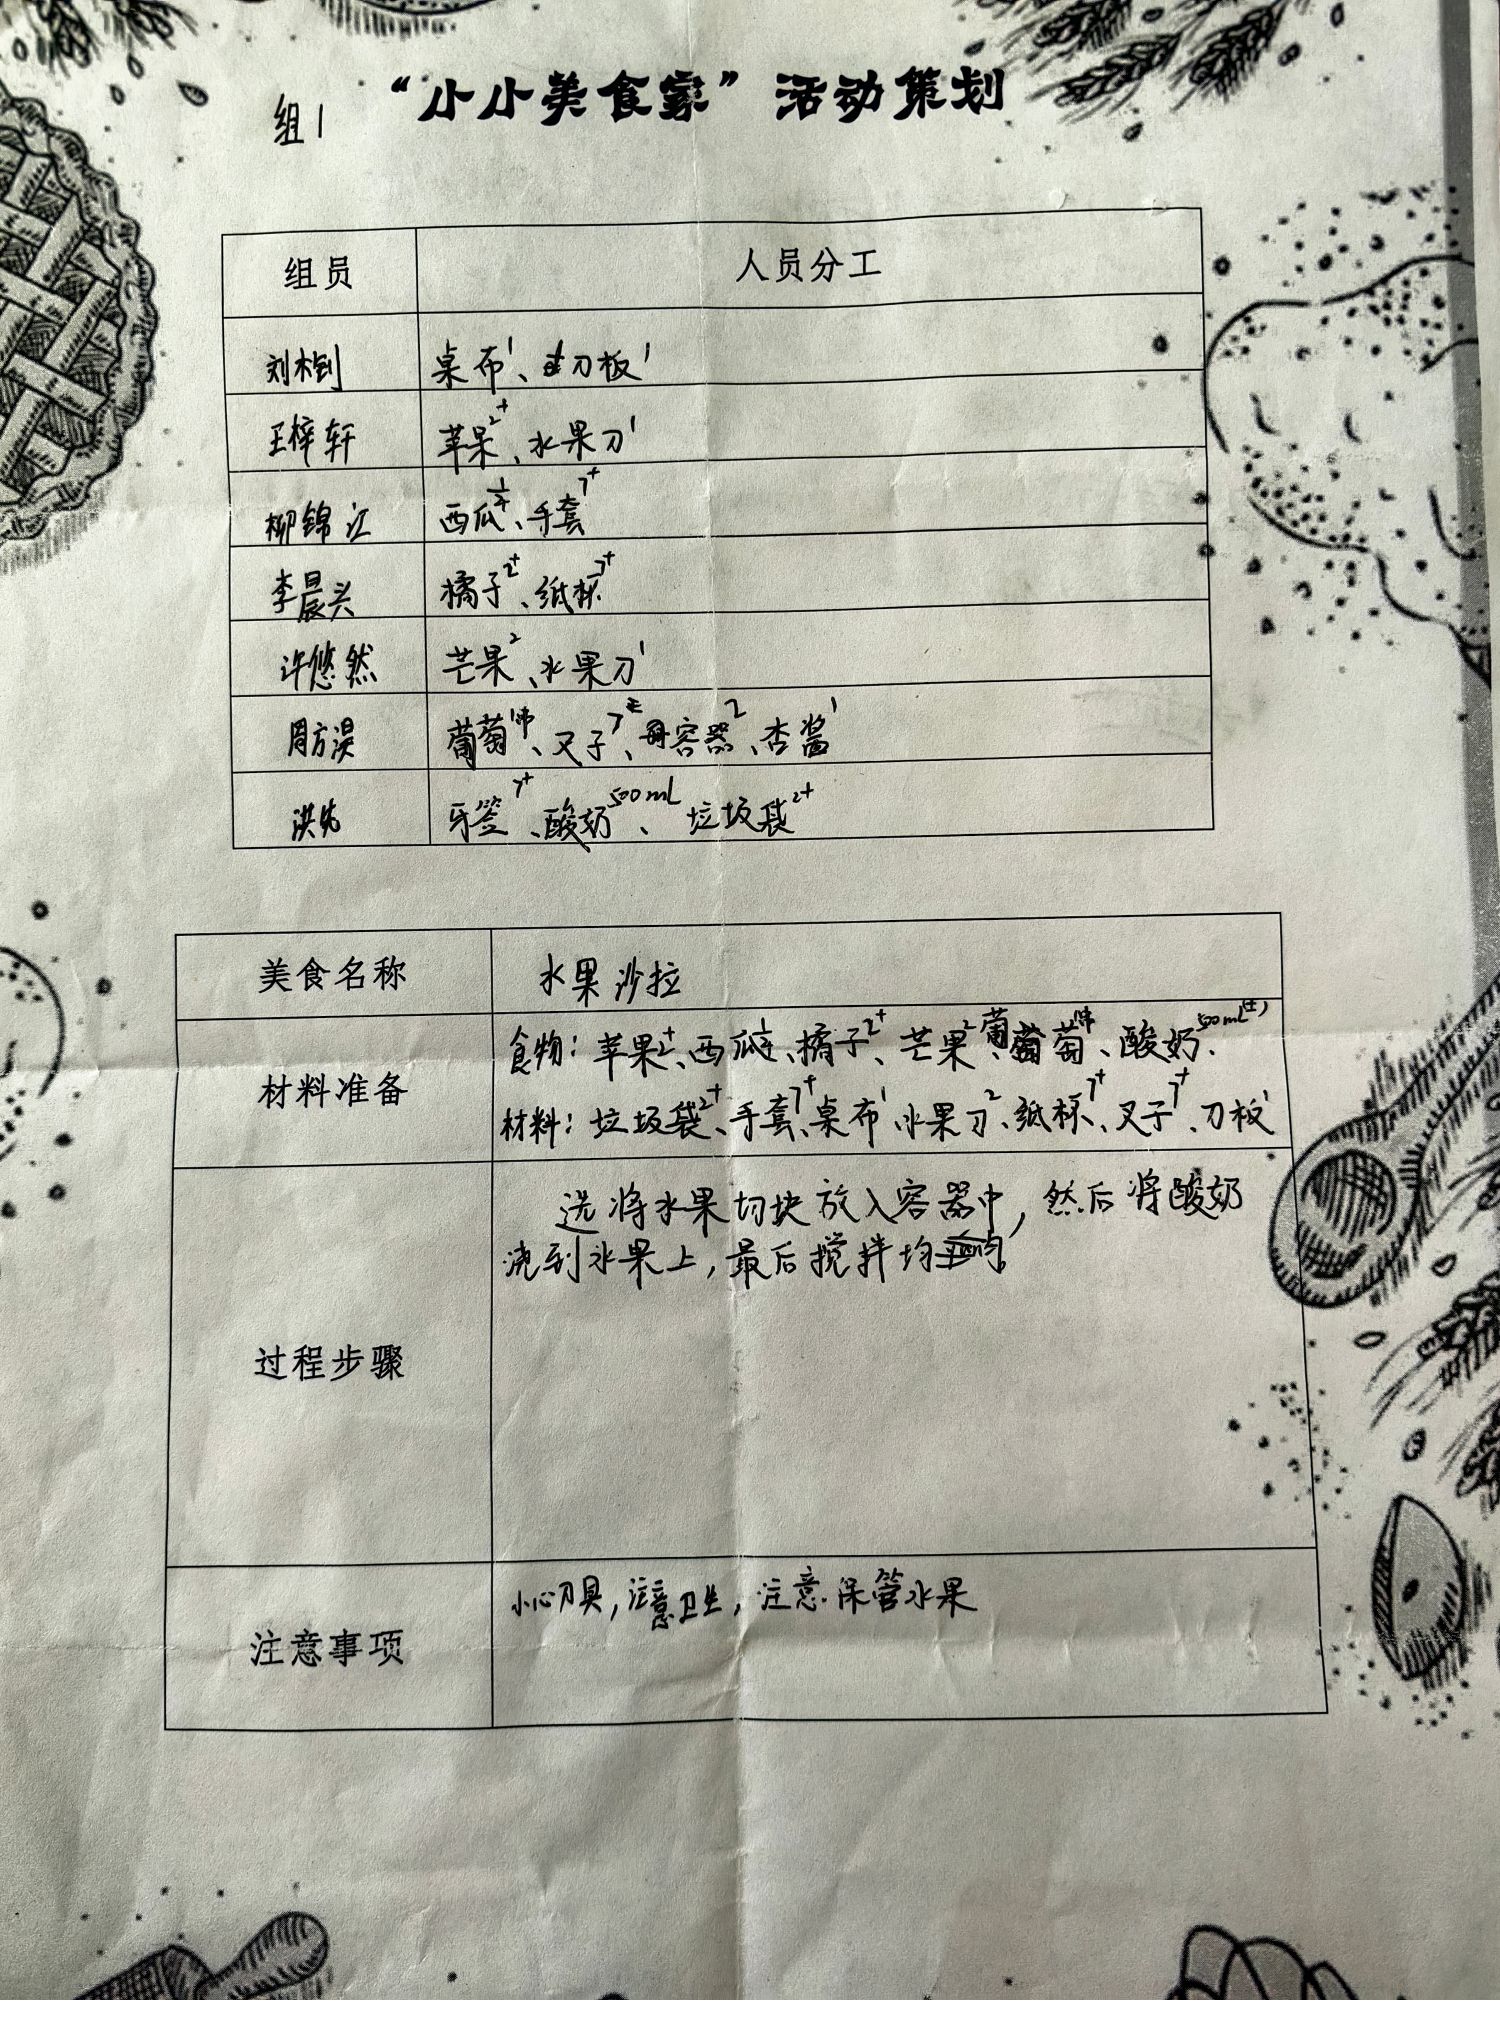 组1
“小小美食家”活动策划
组员 人员分工
桌布1、刀板1
王梓轩 苹果2+、水果刀1
柳锦江 西瓜、手套7+
李晨兴 橘子2+、纸杯7+
许悠然 芒果2、水果刀1
葡萄1串、叉子7、容器2、杏酱1
牙签7+、酸奶500mL、垃圾袋2+
美食名称 水果沙拉
食物：苹果2+、西瓜、橘子2+、芒果2、葡萄1串、酸奶500mL(±)、
材料准备
材料：垃圾袋2+、手套7+、桌布1、水果刀2、纸杯7+、叉子7+、刀板1
选将水果切块放入容器中，然后将酸奶
浇到水果上，最后搅拌均
过程步骤
小心刀具，注意卫生，注意保管水果
注意事项